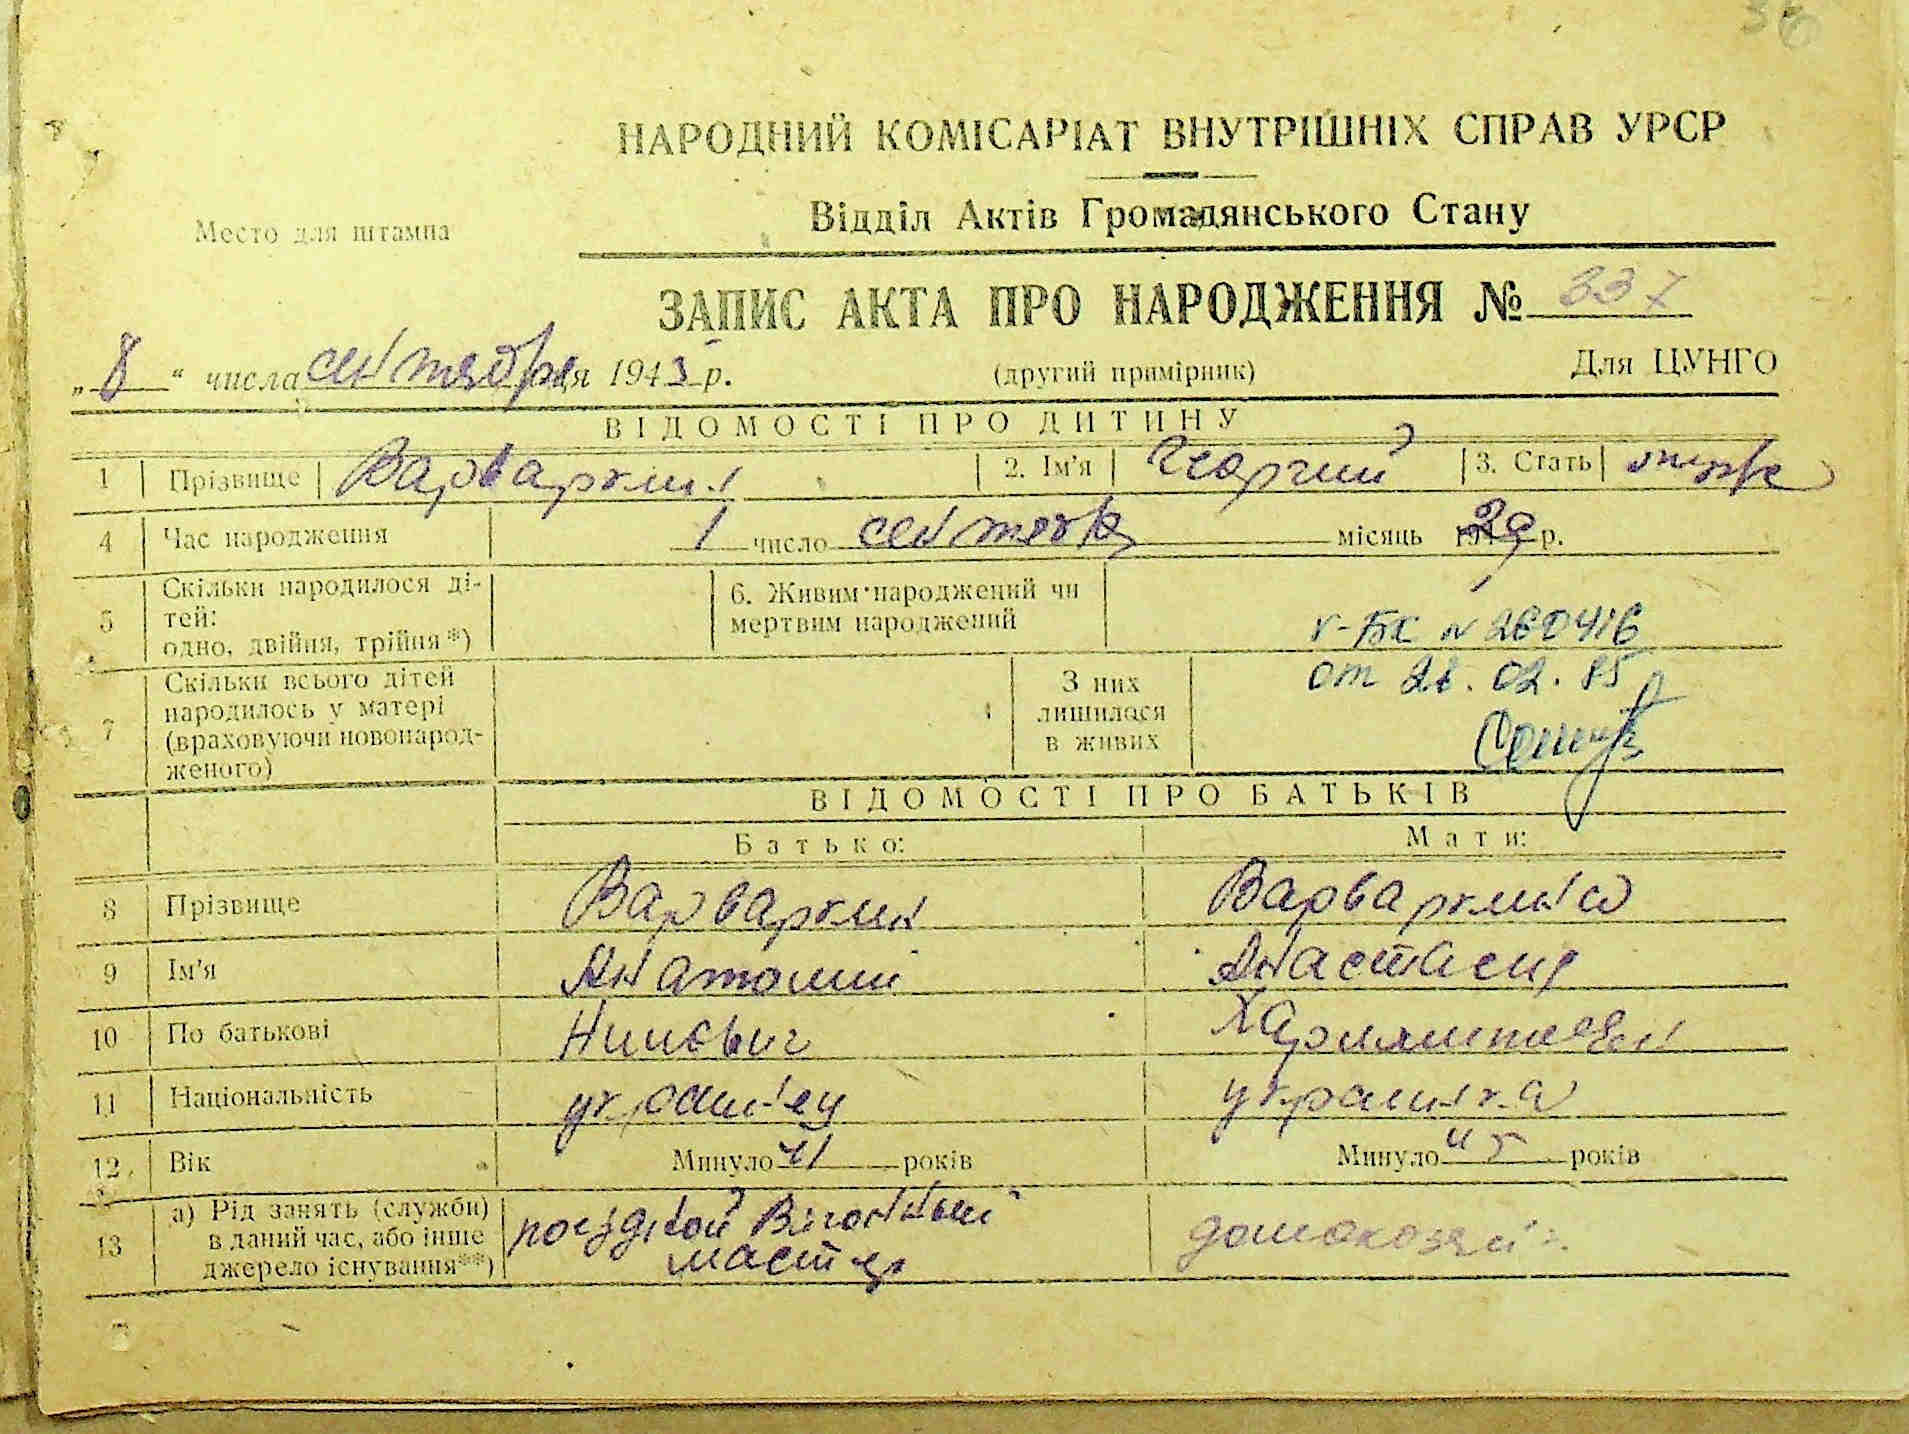 НАРОДНИЙ КОМІСАРІАТ ВНУТРІШНІХ СПРАВ УРСР
Відділ Актів Громадянського Стану
Место для штампа
ЗАПИС АКТА ПРО НАРОДЖЕННЯ № 337
„8“ числа сентября ця 1943 р. (другий примірник) Для ЦУНГО
ВІДОМОСТІ ПРО ДИТИНУ
1 Прізвище Варваркин 2. Ім'я Георгий 3. Стать муж
4 Час народження 1 число сентября місяць 29 р.
5 Скільки народилося ді-
тей:
одно, двійня, трійня*)
6. Живим народжений чи
мертвим народжений
V-БК № 260416
от 21.02.85
7 Скільки всього дітей
народилось у матері
(враховуючи новонарод-
женого)
З них
лишилася
в живих
ВІДОМОСТІ ПРО БАТЬКІВ
Батько: Мати:
8 Прізвище Варваркин Варваркина
9 Ім'я Анатолий Анастасия
10 По батькові
11 Національність украинец украинка
12 Вік Минуло 41 років Минуло 45 років
13 а) Рід занять (служби)
в даний час, або інше
джерело існування**)
поездной Вагонный
мастер
домохозяй